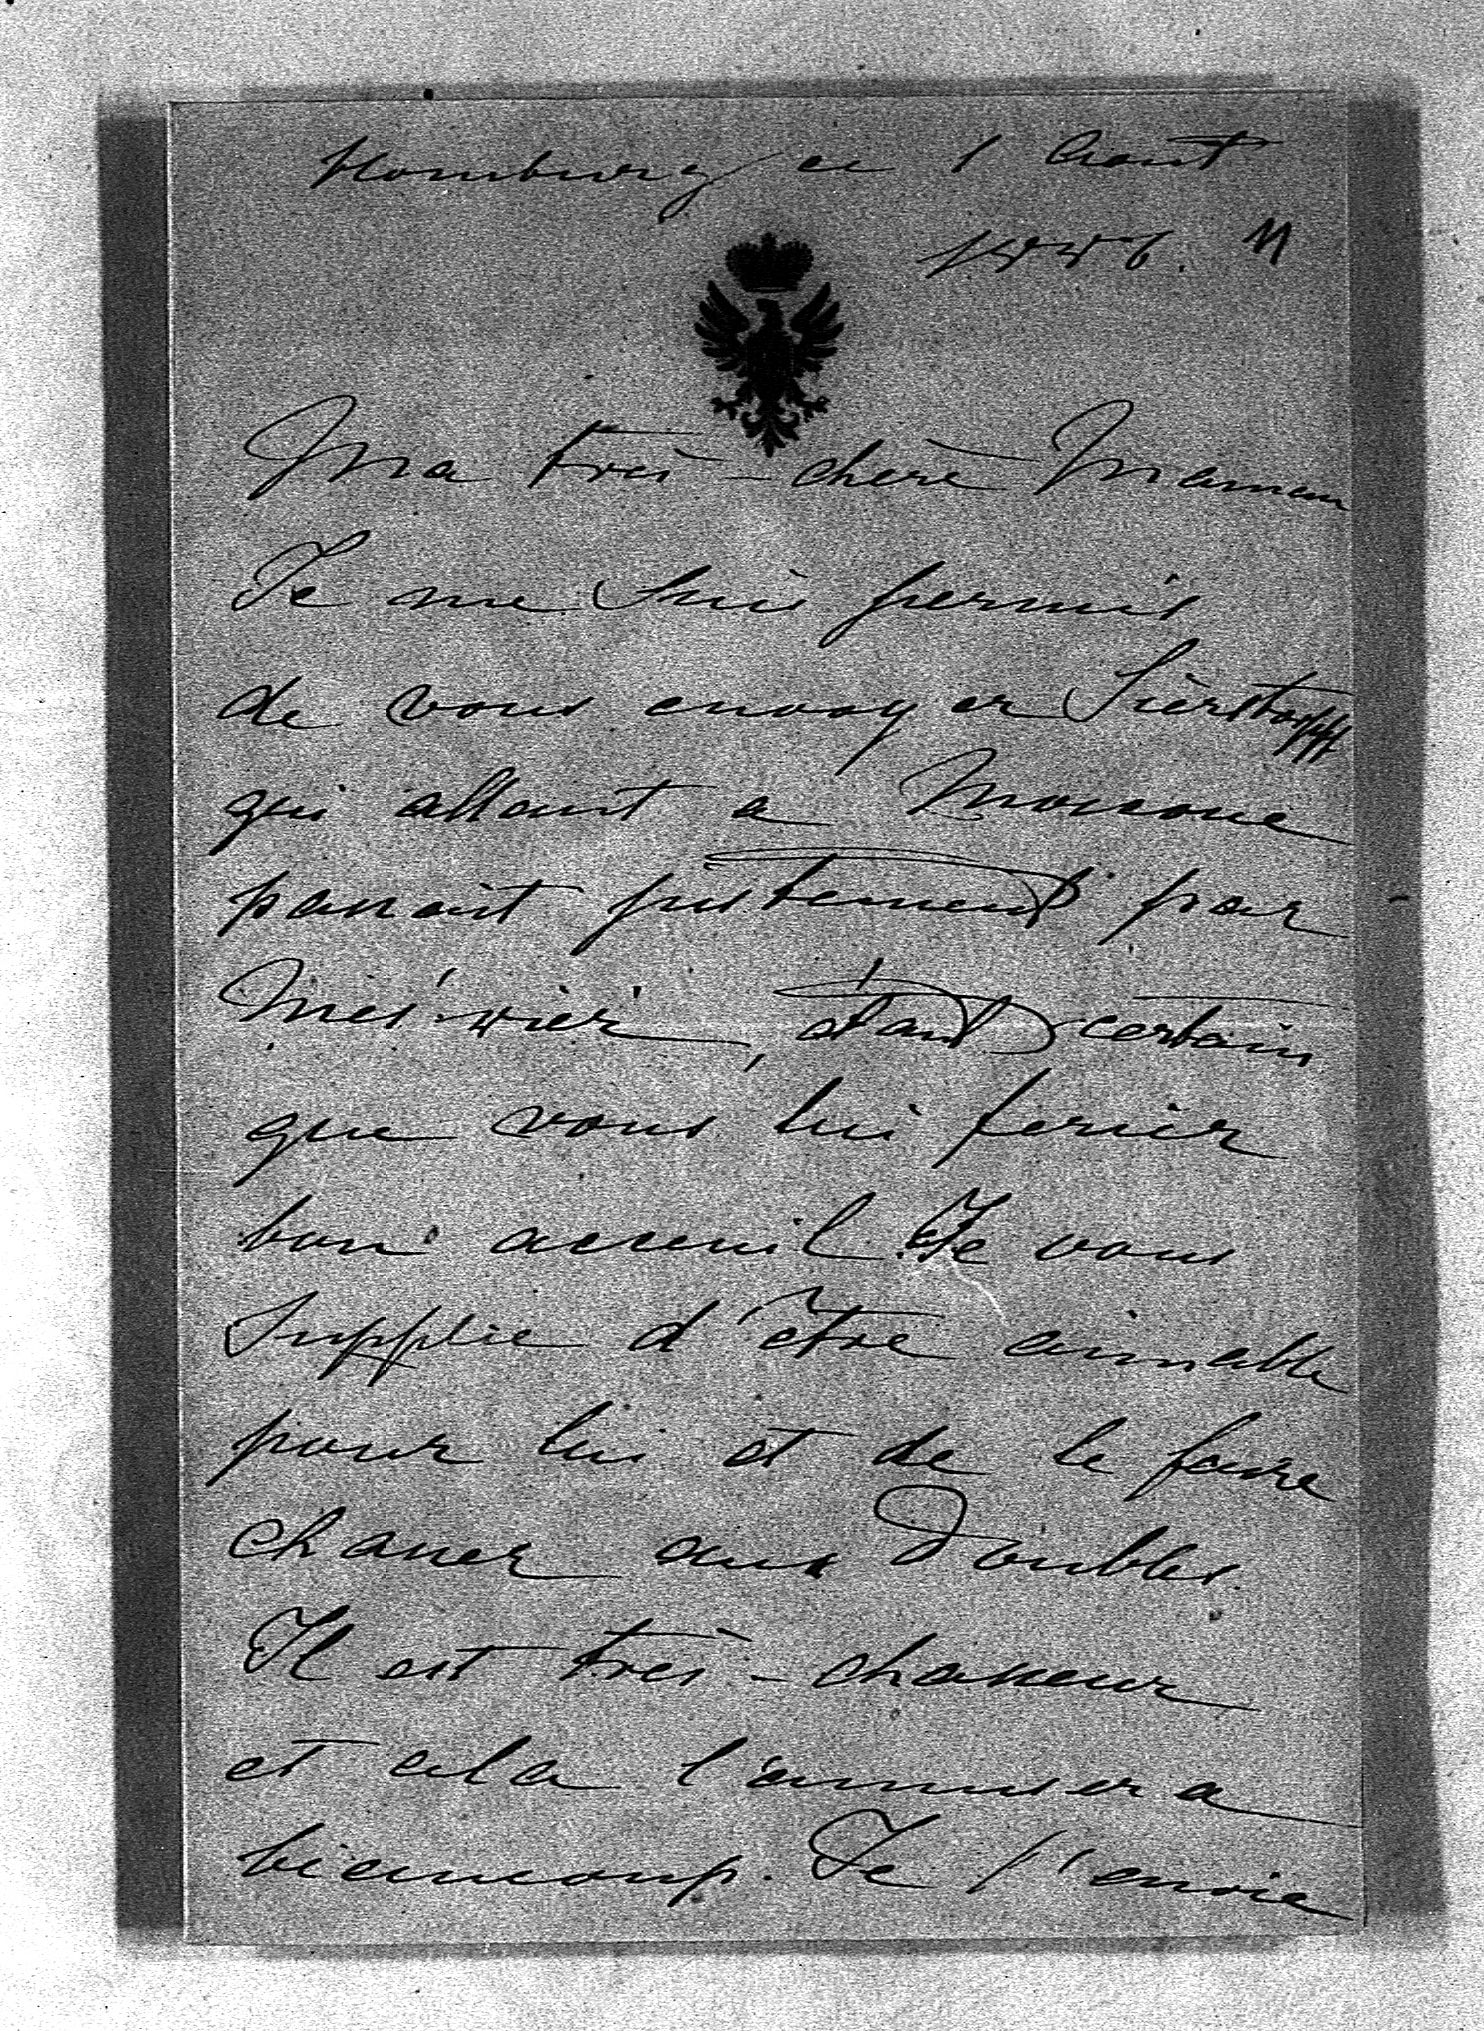 Homburg ce 1 Aout
1886. 11
Ma très-chère Maman
Je me suis permis
de vous envoyer Sierstorpff
qui allant a Moscou
passait justement par
, étant certain
que vous lui feriez
bon accueil. Je vous
supplie d'être aimable
pour lui et de le faire
chasser aux Doubles.
Il est très-chasseur
et cela l'amusera
beaucoup. Je l'envie